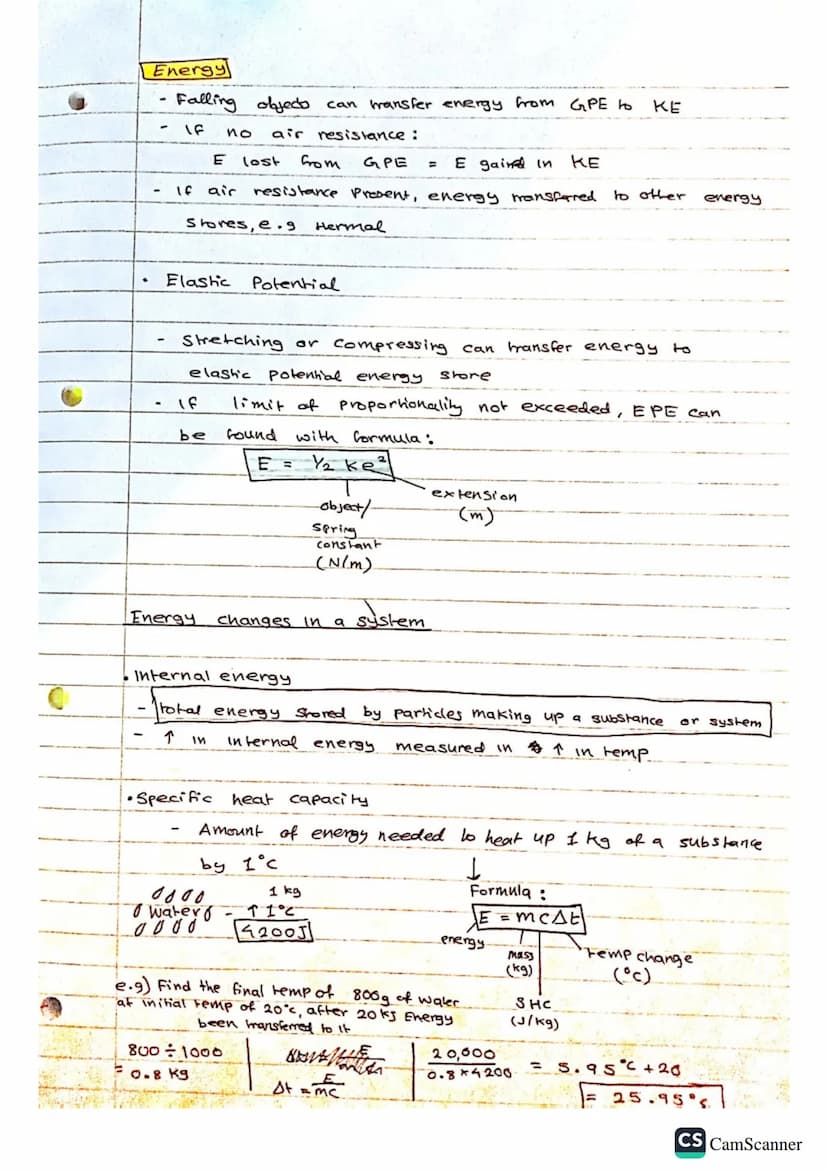 Energy
- Falling objects can transfer energy from GPE to KE
- If no air resistance :
E lost from GPE = E gained in KE
- If air resistance present, energy transferred to other energy
stores, e.g thermal
• Elastic Potential
- Stretching or compressing can transfer energy to
elastic potential energy store
- If limit of proportionality not exceeded, EPE can
be found with formula :
E = ½ ke²
extension
(m)
object/
spring
constant
(N/m)
Energy changes in a system
• Internal energy
- total energy stored by particles making up a substance or system
- ↑ in internal energy measured in ↑ in temp
• Specific heat capacity
- Amount of energy needed to heat up 1 kg of a substance
by 1°C
↓
1 kg
Formula :
water - ↑ 1°C
E = mcΔt
4200J
energy
mass
(kg)
temp change
(°C)
SHC
(J/kg)
e.g) Find the final temp of 800g of water
at initial temp of 20°C, after 20 KJ Energy
been transferred to it
800 ÷ 1000
= 0.8 kg
Δt = E/mc
20,000
0.8 × 4200
= 5.95°C + 20
= 25.95°c
CS CamScanner